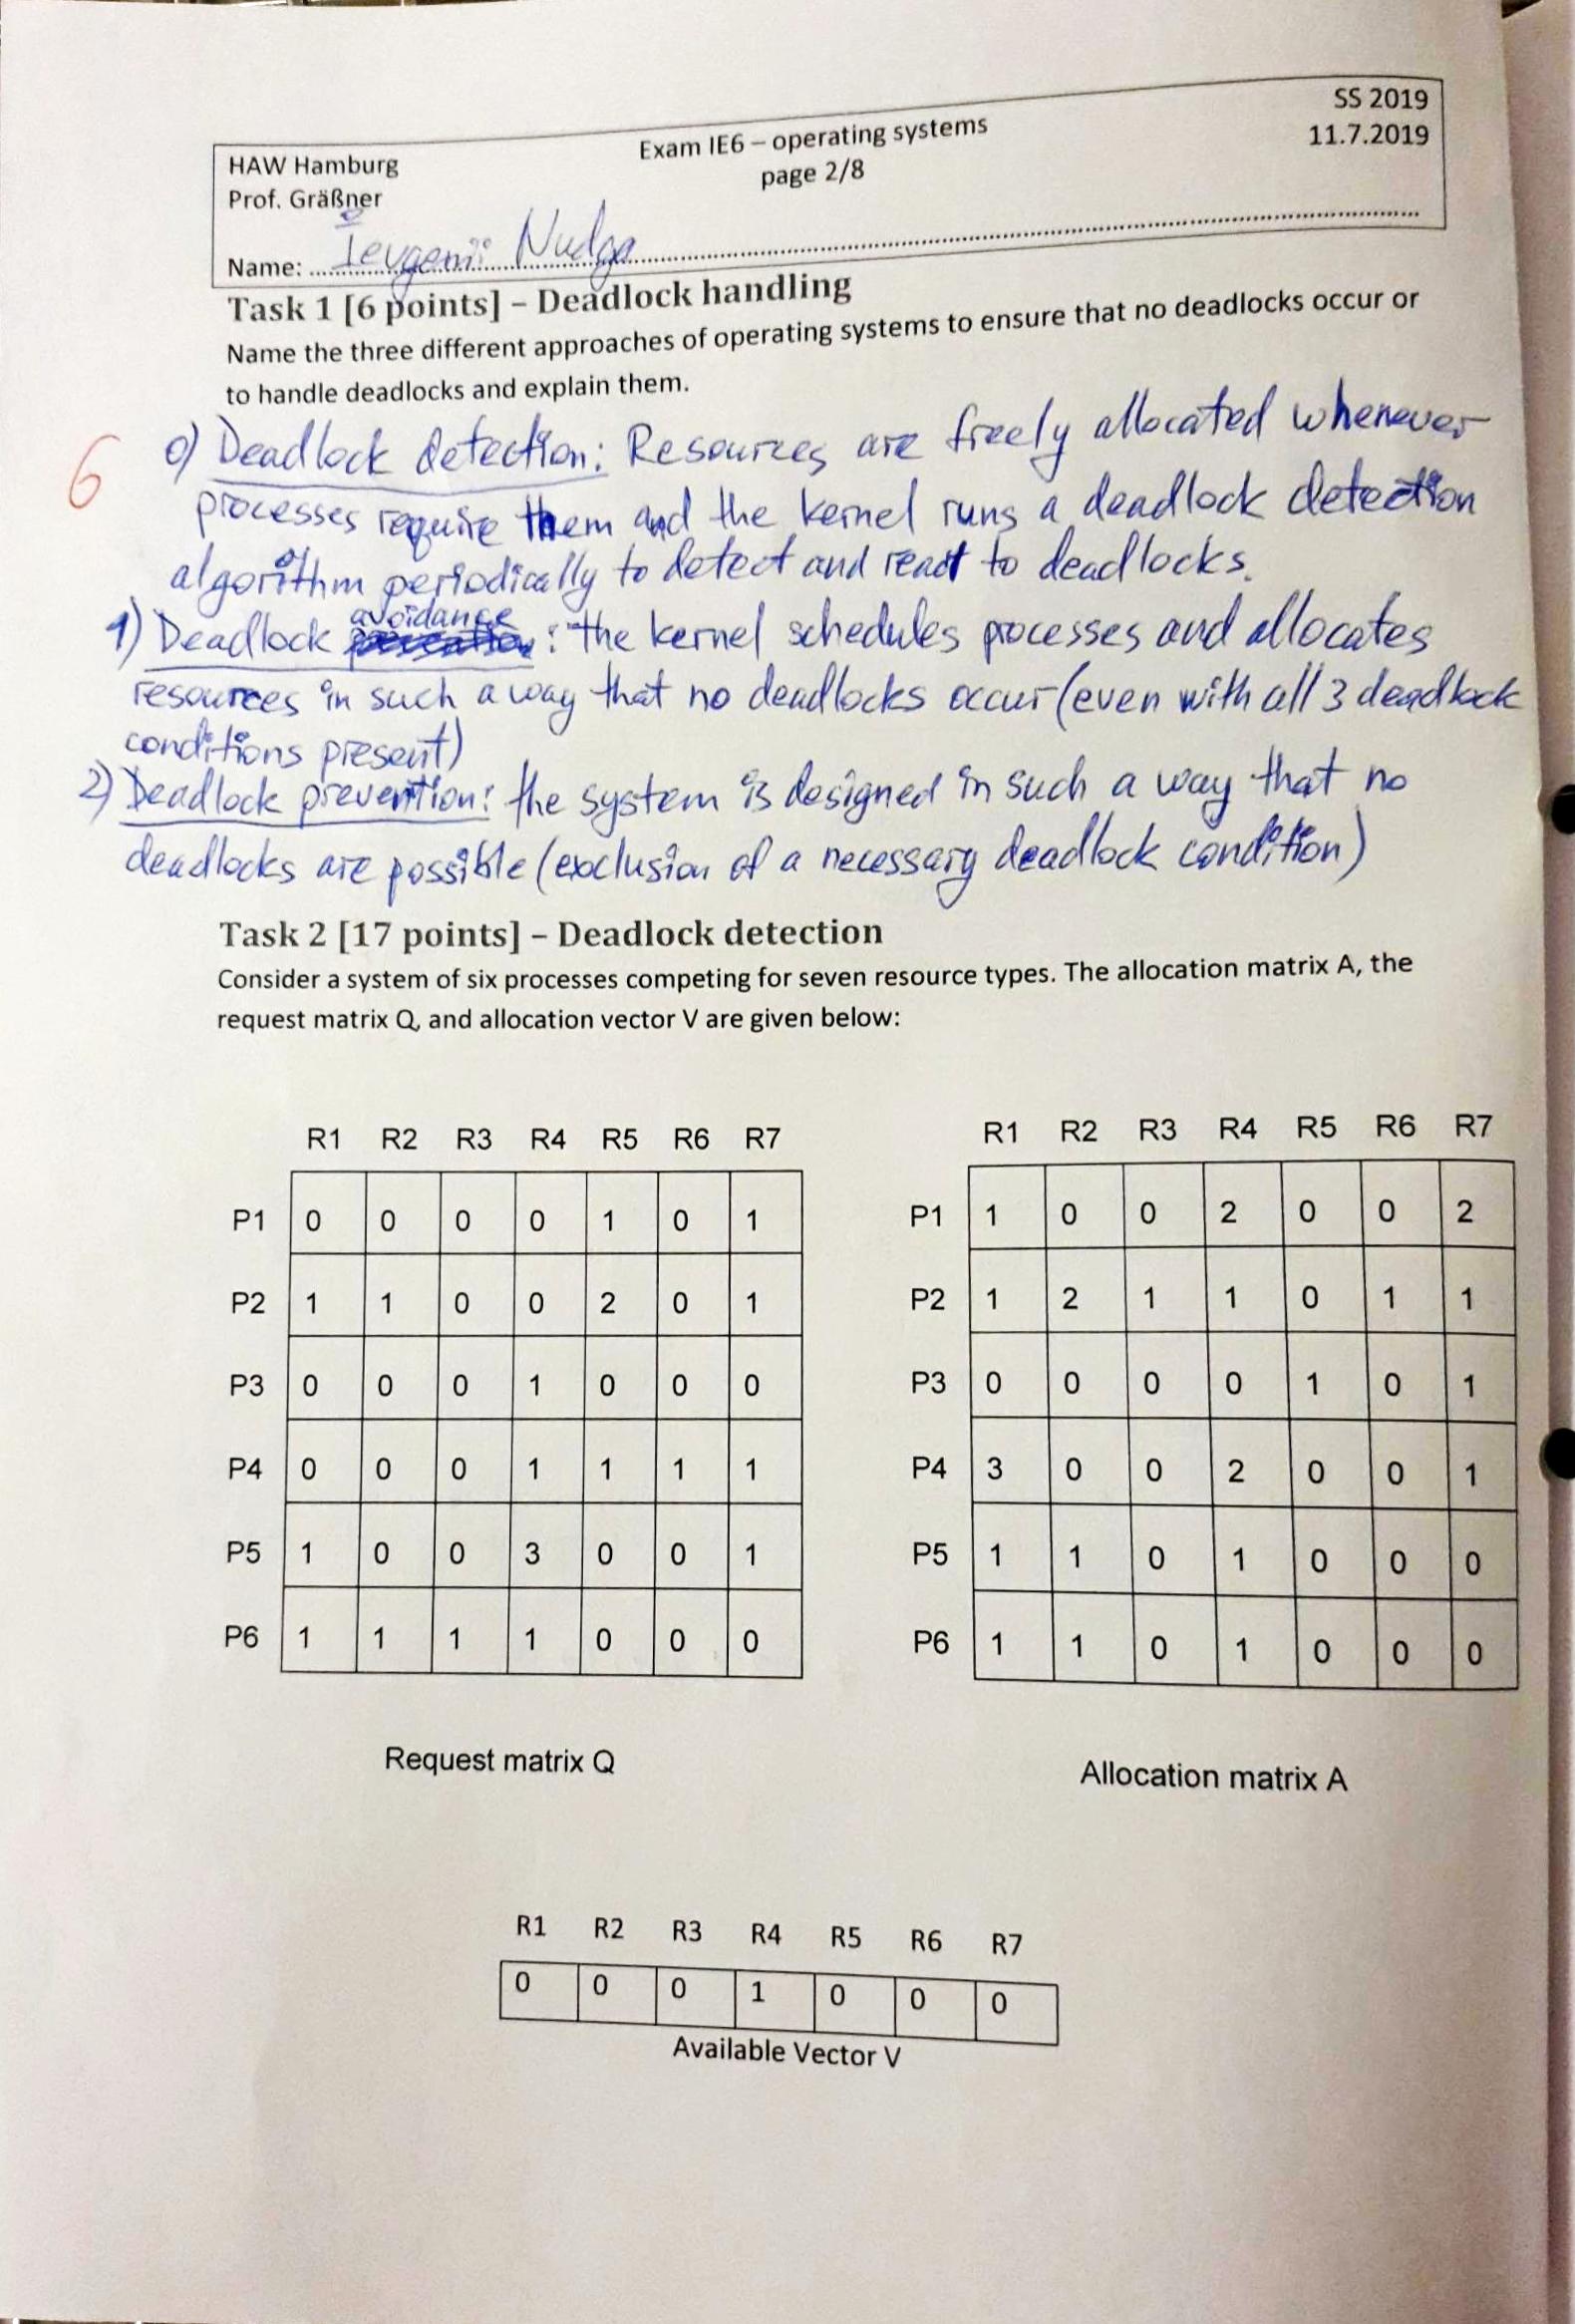 HAW Hamburg
Prof. Gräßner
Exam IE6 – operating systems
page 2/8
SS 2019
11.7.2019
Name: Ievgenii Nudga
Task 1 [6 points] – Deadlock handling
Name the three different approaches of operating systems to ensure that no deadlocks occur or
to handle deadlocks and explain them.
6
0) Deadlock detection: Resources are freely allocated whenever
processes require them and the kernel runs a deadlock detection
algorithm periodically to detect and react to deadlocks.
1) Deadlock avoidance: the kernel schedules processes and allocates
resources in such a way that no deadlocks occur (even with all 3 deadlock
conditions present)
2) Deadlock prevention: the system is designed in such a way that no
deadlocks are possible (exclusion of a necessary deadlock condition)
Task 2 [17 points] – Deadlock detection
Consider a system of six processes competing for seven resource types. The allocation matrix A, the
request matrix Q, and allocation vector V are given below:
R1 R2 R3 R4 R5 R6 R7
P1 0 0 0 0 1 0 1
P2 1 1 0 0 2 0 1
P3 0 0 0 1 0 0 0
P4 0 0 0 1 1 1 1
P5 1 0 0 3 0 0 1
P6 1 1 1 1 0 0 0
Request matrix Q
R1 R2 R3 R4 R5 R6 R7
P1 1 0 0 2 0 0 2
P2 1 2 1 1 0 1 1
P3 0 0 0 0 1 0 1
P4 3 0 0 2 0 0 1
P5 1 1 0 1 0 0 0
P6 1 1 0 1 0 0 0
Allocation matrix A
R1 R2 R3 R4 R5 R6 R7
0 0 0 1 0 0 0
Available Vector V